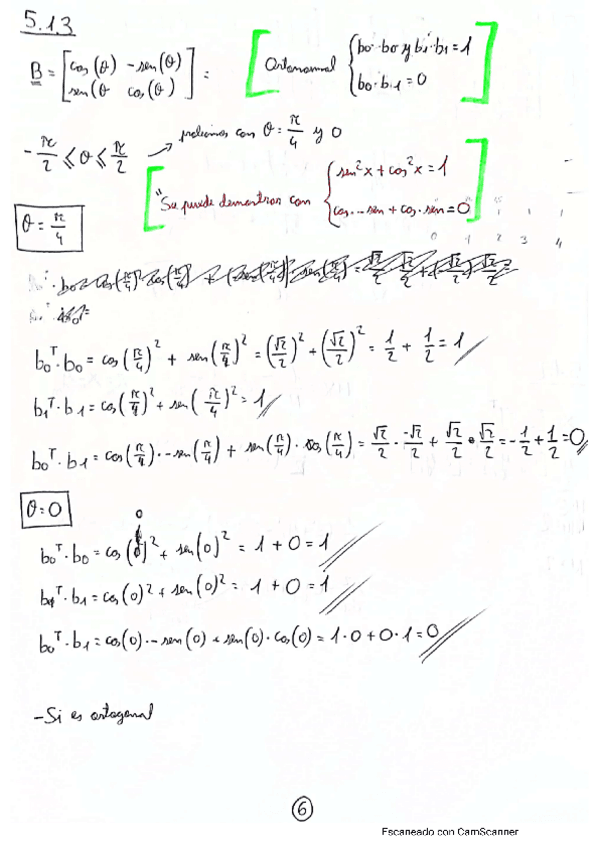 5.13
B = [cos(θ) -sen(θ)
sen(θ cos(θ)] = [Ortonormal {b₀·b₀ y b₁·b₁ = 1
b₀·b₁ = 0]
-π/2 ≤ θ ≤ π/2 → probamos con θ = π/4 y 0
["Se puede demostrar con {sen²x + cos²x = 1
cos·-sen + cos·sen = 0]
θ = π/4
b₀ᵀ·b₀ = cos(π/4)² + sen(π/4)² = (√2/2)² + (√2/2)² = 1/2 + 1/2 = 1
b₁ᵀ·b₁ = cos(π/4)² + sen(π/4)² = 1
b₀ᵀ·b₁ = cos(π/4)·-sen(π/4) + sen(π/4)·cos(π/4) = √2/2 · -√2/2 + √2/2 · √2/2 = -1/2 + 1/2 = 0
θ = 0
b₀ᵀ·b₀ = cos(0)² + sen(0)² = 1 + 0 = 1
b₁ᵀ·b₁ = cos(0)² + sen(0)² = 1 + 0 = 1
b₀ᵀ·b₁ = cos(0)·-sen(0) + sen(0)·cos(0) = 1·0 + 0·1 = 0
-Si es ortogonal
6
Escaneado con CamScanner